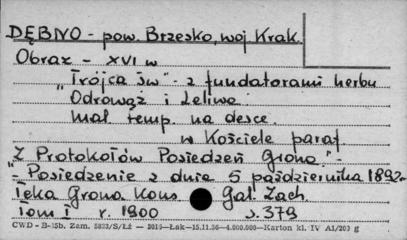 DĘBNO - pow. Brzesko, woj Krak.
Obraz - XVI w
"Trójca św" - z fundatorami herbu
Odrowąż i Leliwa
mal temp. na desce
w Kościele paraf
"Z Protokołów Posiedzeń Grona" -
- Posiedzenie z dnia 5 października 1892 -
Teka Grona Kons Gal. Zach.
Tom I r. 1900 s. 379
CWD - B-15b. Zam. 5823/S/Łż — 2016—Łak—15.11.56—4.000.000—Karton kl. IV A1/200 g